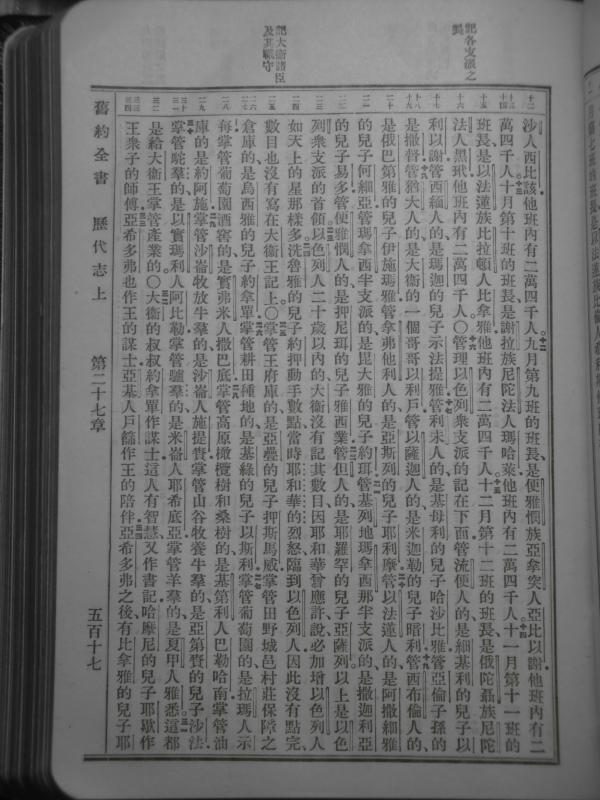 記各支派之
記大衛諸臣
及其職守
沙人西比該他班內有二萬四千人九月第九班的班長是便雅憫族亞拿突人亞比以謝他班內有二
萬四千人十月第十班的班長是謝拉族尼陀法人瑪哈萊他班內有二萬四千人十一月第十一班的
班長是以法蓮族比拉頓人比拿雅他班內有二萬四千人十二月第十二班的班長是俄陀聶族尼陀
法人黑玳他班內有二萬四千人〇管理以色列衆支派的記在下面管流便人的是細基利的兒子以
利以謝管西緬人的是瑪迦的兒子示法提雅管利未人的是基母利的兒子哈沙比雅管亞倫子孫的
是撒督管猶大人的是大衛的一個哥哥以利戶管以薩迦人的是米迦勒的兒子暗利管西布倫人的
是俄巴第雅的兒子伊施瑪雅管拿弗他利人的是亞斯列的兒子耶利摩管以法蓮人的是阿撒細雅
的兒子何細亞管瑪拿西半支派的是毘大雅的兒子約珥管基列地瑪拿西那半支派的是撒迦利亞
的兒子易多管便雅憫人的是押尼珥的兒子雅西業管但人的是耶羅罕的兒子亞薩列以上是以色
列衆支派的首領以色列人二十歲以內的大衛沒有記其數目因耶和華曾應許說必加增以色列人
如天上的星那樣多洗魯雅的兒子約押動手數點當時耶和華的烈怒臨到以色列人因此沒有點完
數目也沒有寫在大衛王記上〇掌管王府庫的是亞疊的兒子押斯馬威掌管田野城邑村莊保障之
倉庫的是烏西雅的兒子約拿單掌管耕田種地的是基綠的兒子以斯利掌管葡萄園的是拉瑪人示
每掌管葡萄園酒窖的是實弗米人撒巴底掌管高原橄欖樹和桑樹的是基第利人巴勒哈南掌管油
庫的是約阿施掌管沙崙牧放牛羣的是沙崙人施提賚掌管山谷牧養牛羣的是亞第賚的兒子沙法
掌管駝羣的是以實瑪利人阿比勒掌管驢羣的是米崙人耶希底亞掌管羊羣的是夏甲人雅悉這都
是給大衛王掌管產業的〇大衛的叔叔約拿單作謀士這人有智慧又作書記哈摩尼的兒子耶歇作
王衆子的師傅亞希多弗也作王的謀士亞基人戶篩作王的陪伴亞希多弗之後有比拿雅的兒子耶
舊約全書 歷代志上 第二十七章 五百十七